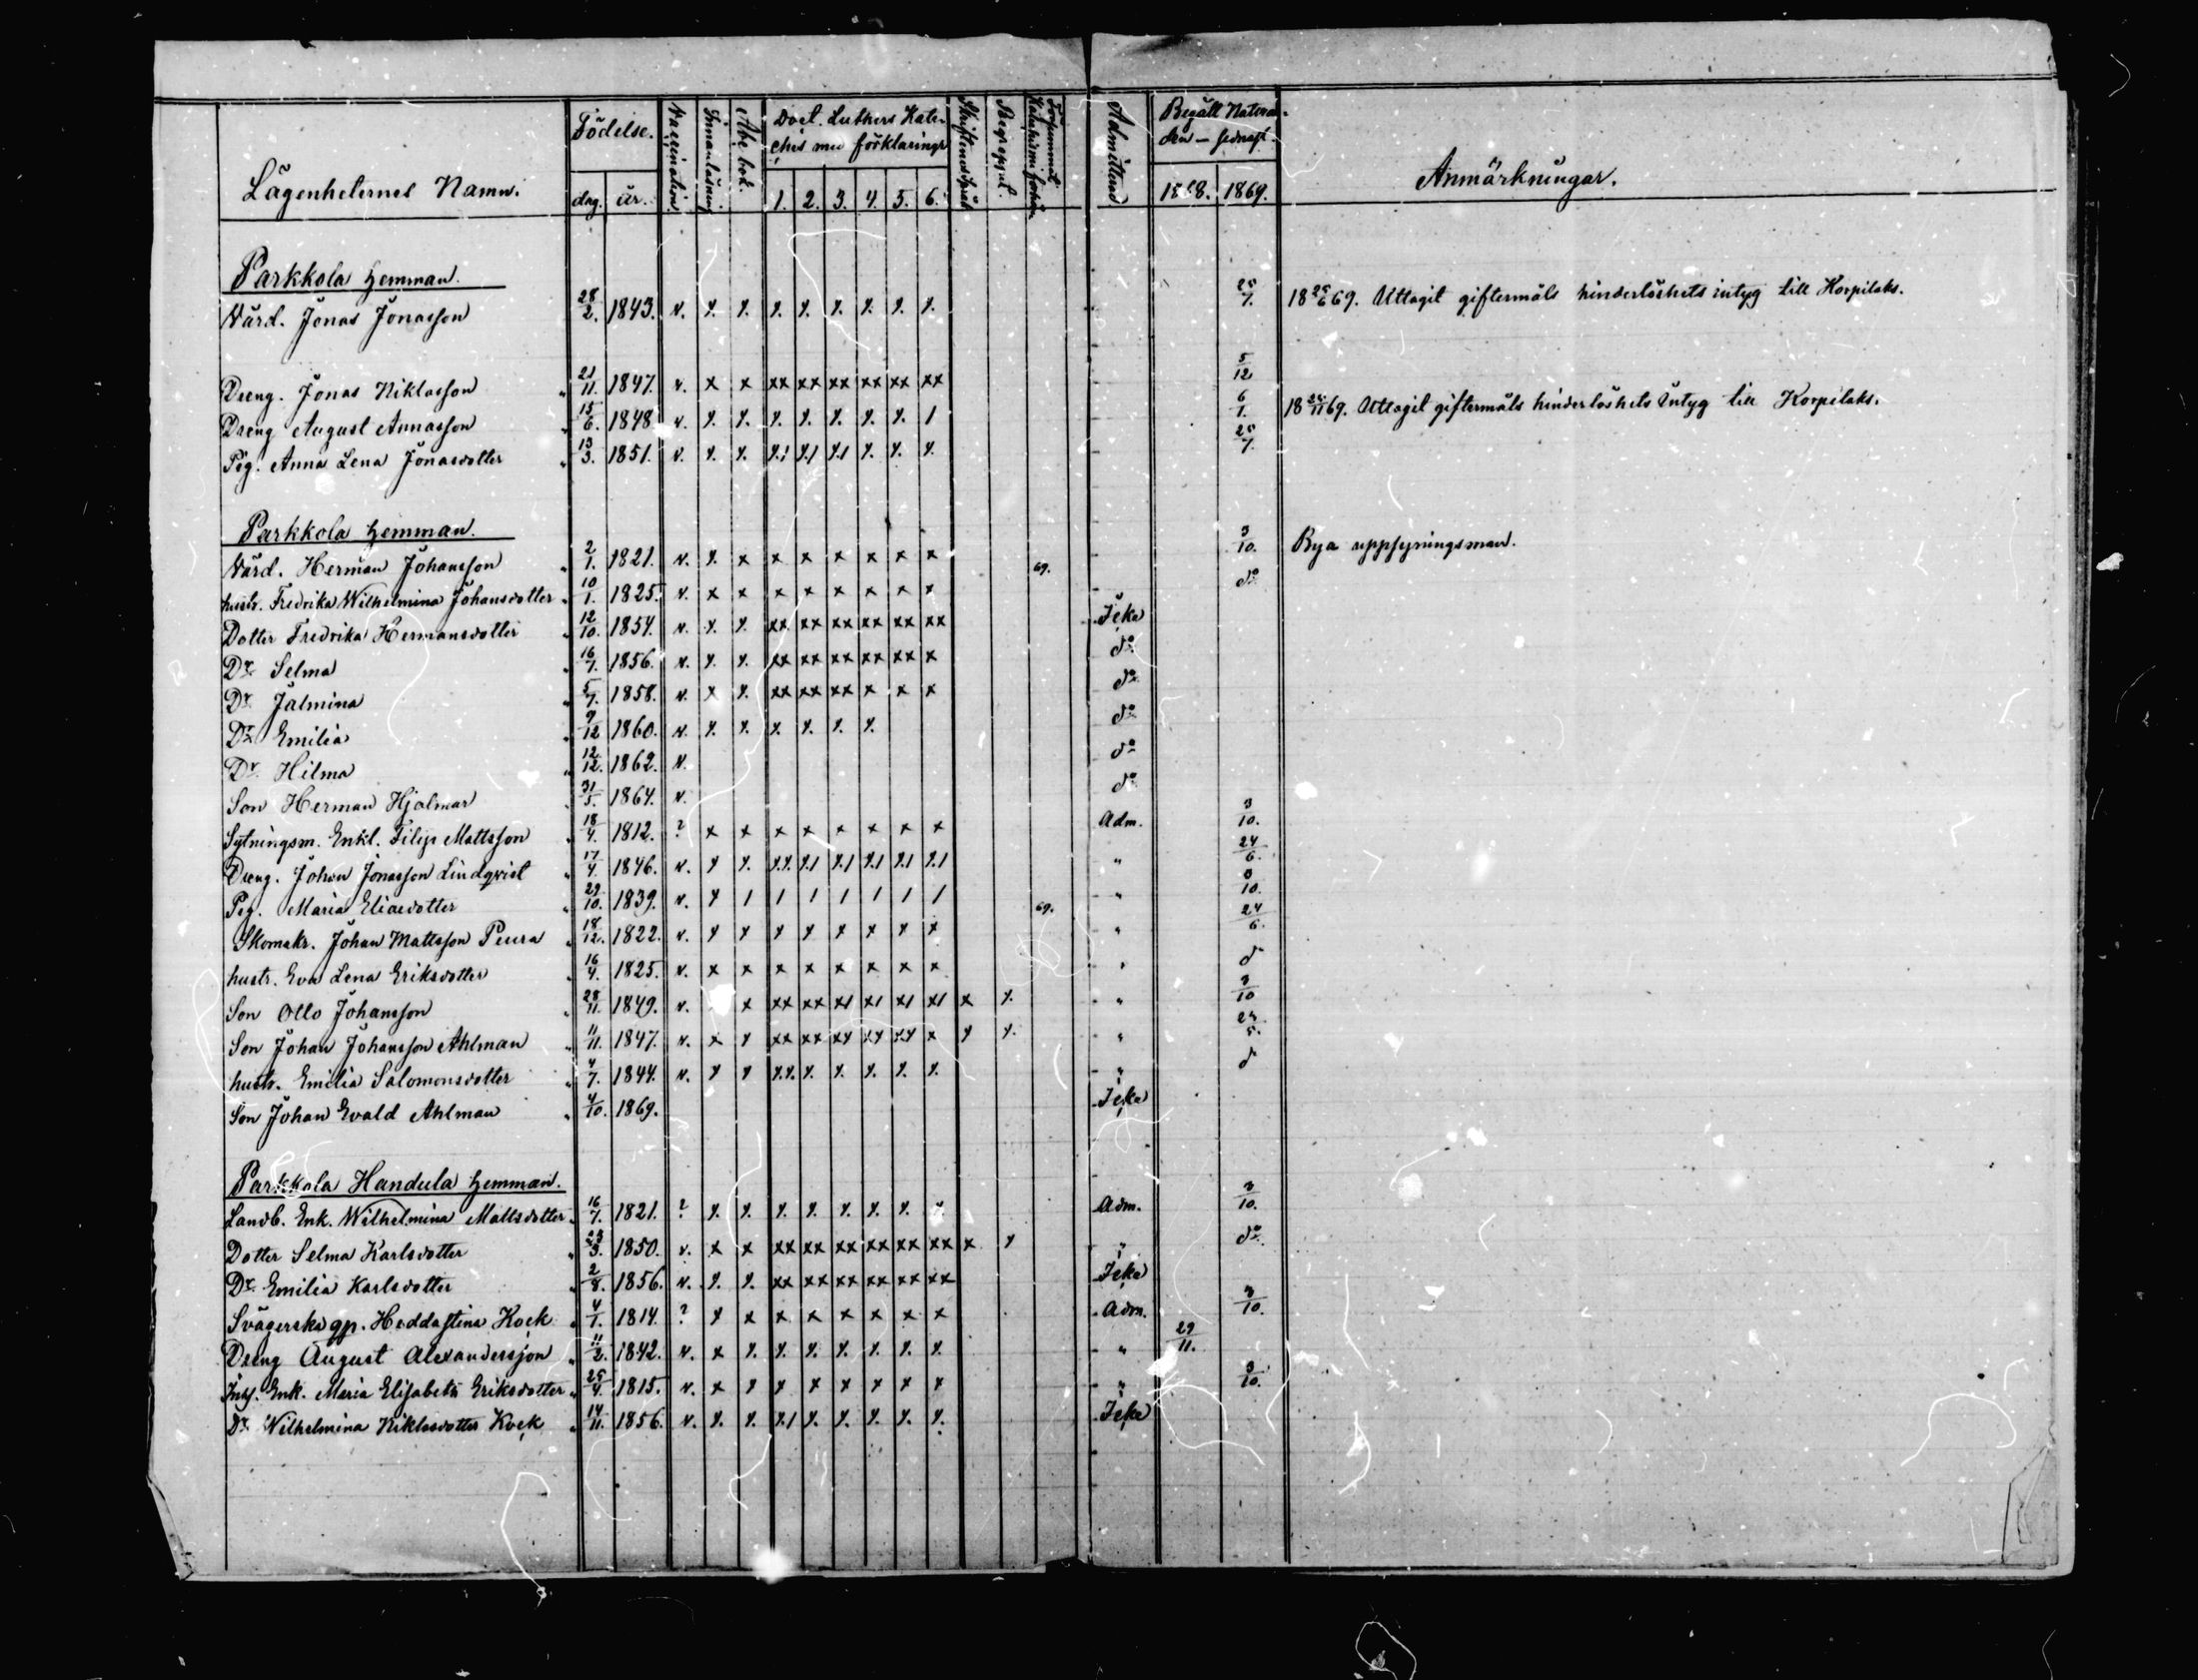 Lägenheternes Namn. Födelse. dag. år. Vaccination. Innanläsning Abc bok. Doct. Luthers Kate-
chis med förklaringr 1. 2. 3. 4. 5. 6. Admitterad Begått Nattvar-
den – sednast 1868. 1869. Anmärkningar.
Parkkola hemman.
Värd. Jonas Jonasson 28/2. 1843. v. 25/7. 18 25/6 69. Uttagit giftermåls hinderlöshets intyg till Korpilaks.
Dreng. Jonas Niklasson 21/11. 1847. v. x x xx xx xx xx xx xx 5/12
Dreng August Annasson 15/6. 1848 v. 6/1. 18 24/11 69. Uttagit giftermåls hinderlöshets intyg till Korpilaks.
Pig. Anna Lena Jonasdotter 13/3. 1851. v. 25/7.
Parkkola hemman.
Värd. Herman Johansson 2/1. 1821. v. x x x x x x x 69. 3/10. Bya uppsyningsman.
hustr. Fredrika Wilhelmina Johansdotter " 10/1. 1825. v. x x x x x x x x do
Dotter Fredrika Hermansdotter " 12/10. 1854. v. xx xx xx xx xx xx Icke
Dr Selma " 16/7. 1856. v. xx xx xx xx xx x do
Dr Jalmina " 5/7. 1858. v. x xx xx xx x x x do
Dr Emilia " 9/12 1860. v. do
Dr Hilma " 12/12. 1862. v. do
Son Herman Hjalmar " 31/5. 1864. v. do
Sytningsm. Enkl. Filip Mattsson " 18/4. 1812. ? x x x x x x x x Adm. 3/10.
Dreng. Johan Jonasson Lindqvist " 17/4. 1846. v. " 24/6.
Pig. Maria Eliaedotter " 29/10. 1839. v. / / / / / / / " 69. 3/10.
Skomakr. Johan Mattsson Peura " 18/12. 1822. v. x x x x x x x x " 24/6.
hustr. Eva Lena Eriksdotter " 16/4. 1825. v. x x x x x x x x " d
Son Otto Johansson " 28/11. 1849. v. x xx xx x/ x/ x/ x/ x " 3/10
Son Johan Johansson Ahlman " 11/11. 1847. v. x x xx xx xx xx xx x x "
hustr. Emilia Salomonsdotter " 4/7. 1844. v. " d
Son Johan Evald Ahlman " 4/10. 1869. Icke
Parkkola Handula hemman.
Landb. Enk. Wilhelmina Mattsdotter 16/7. 1821. ? Adm. 3/10.
Dotter Selma Karlsdotter " 23/3. 1850. v. x x xx xx xx xx xx xx x x " do
Dr Emilia Karlsdotter 2/8. 1856. v. xx xx xx xx xx xx Icke
Svägerska gp. Heddastina Kock " 4/1. 1814. ? x x x x x x x x Adm. 3/10.
Dreng August Alexandersson " 11/2. 1842. v. x " 29/11.
Inhs. Enk. Maria Elisabeth Eriksdotter " 25/4. 1815. v. x x x x x x x x " 3/10.
Dr Wilhelmina Niklasdotter Kock " 14/11. 1856. v. Icke